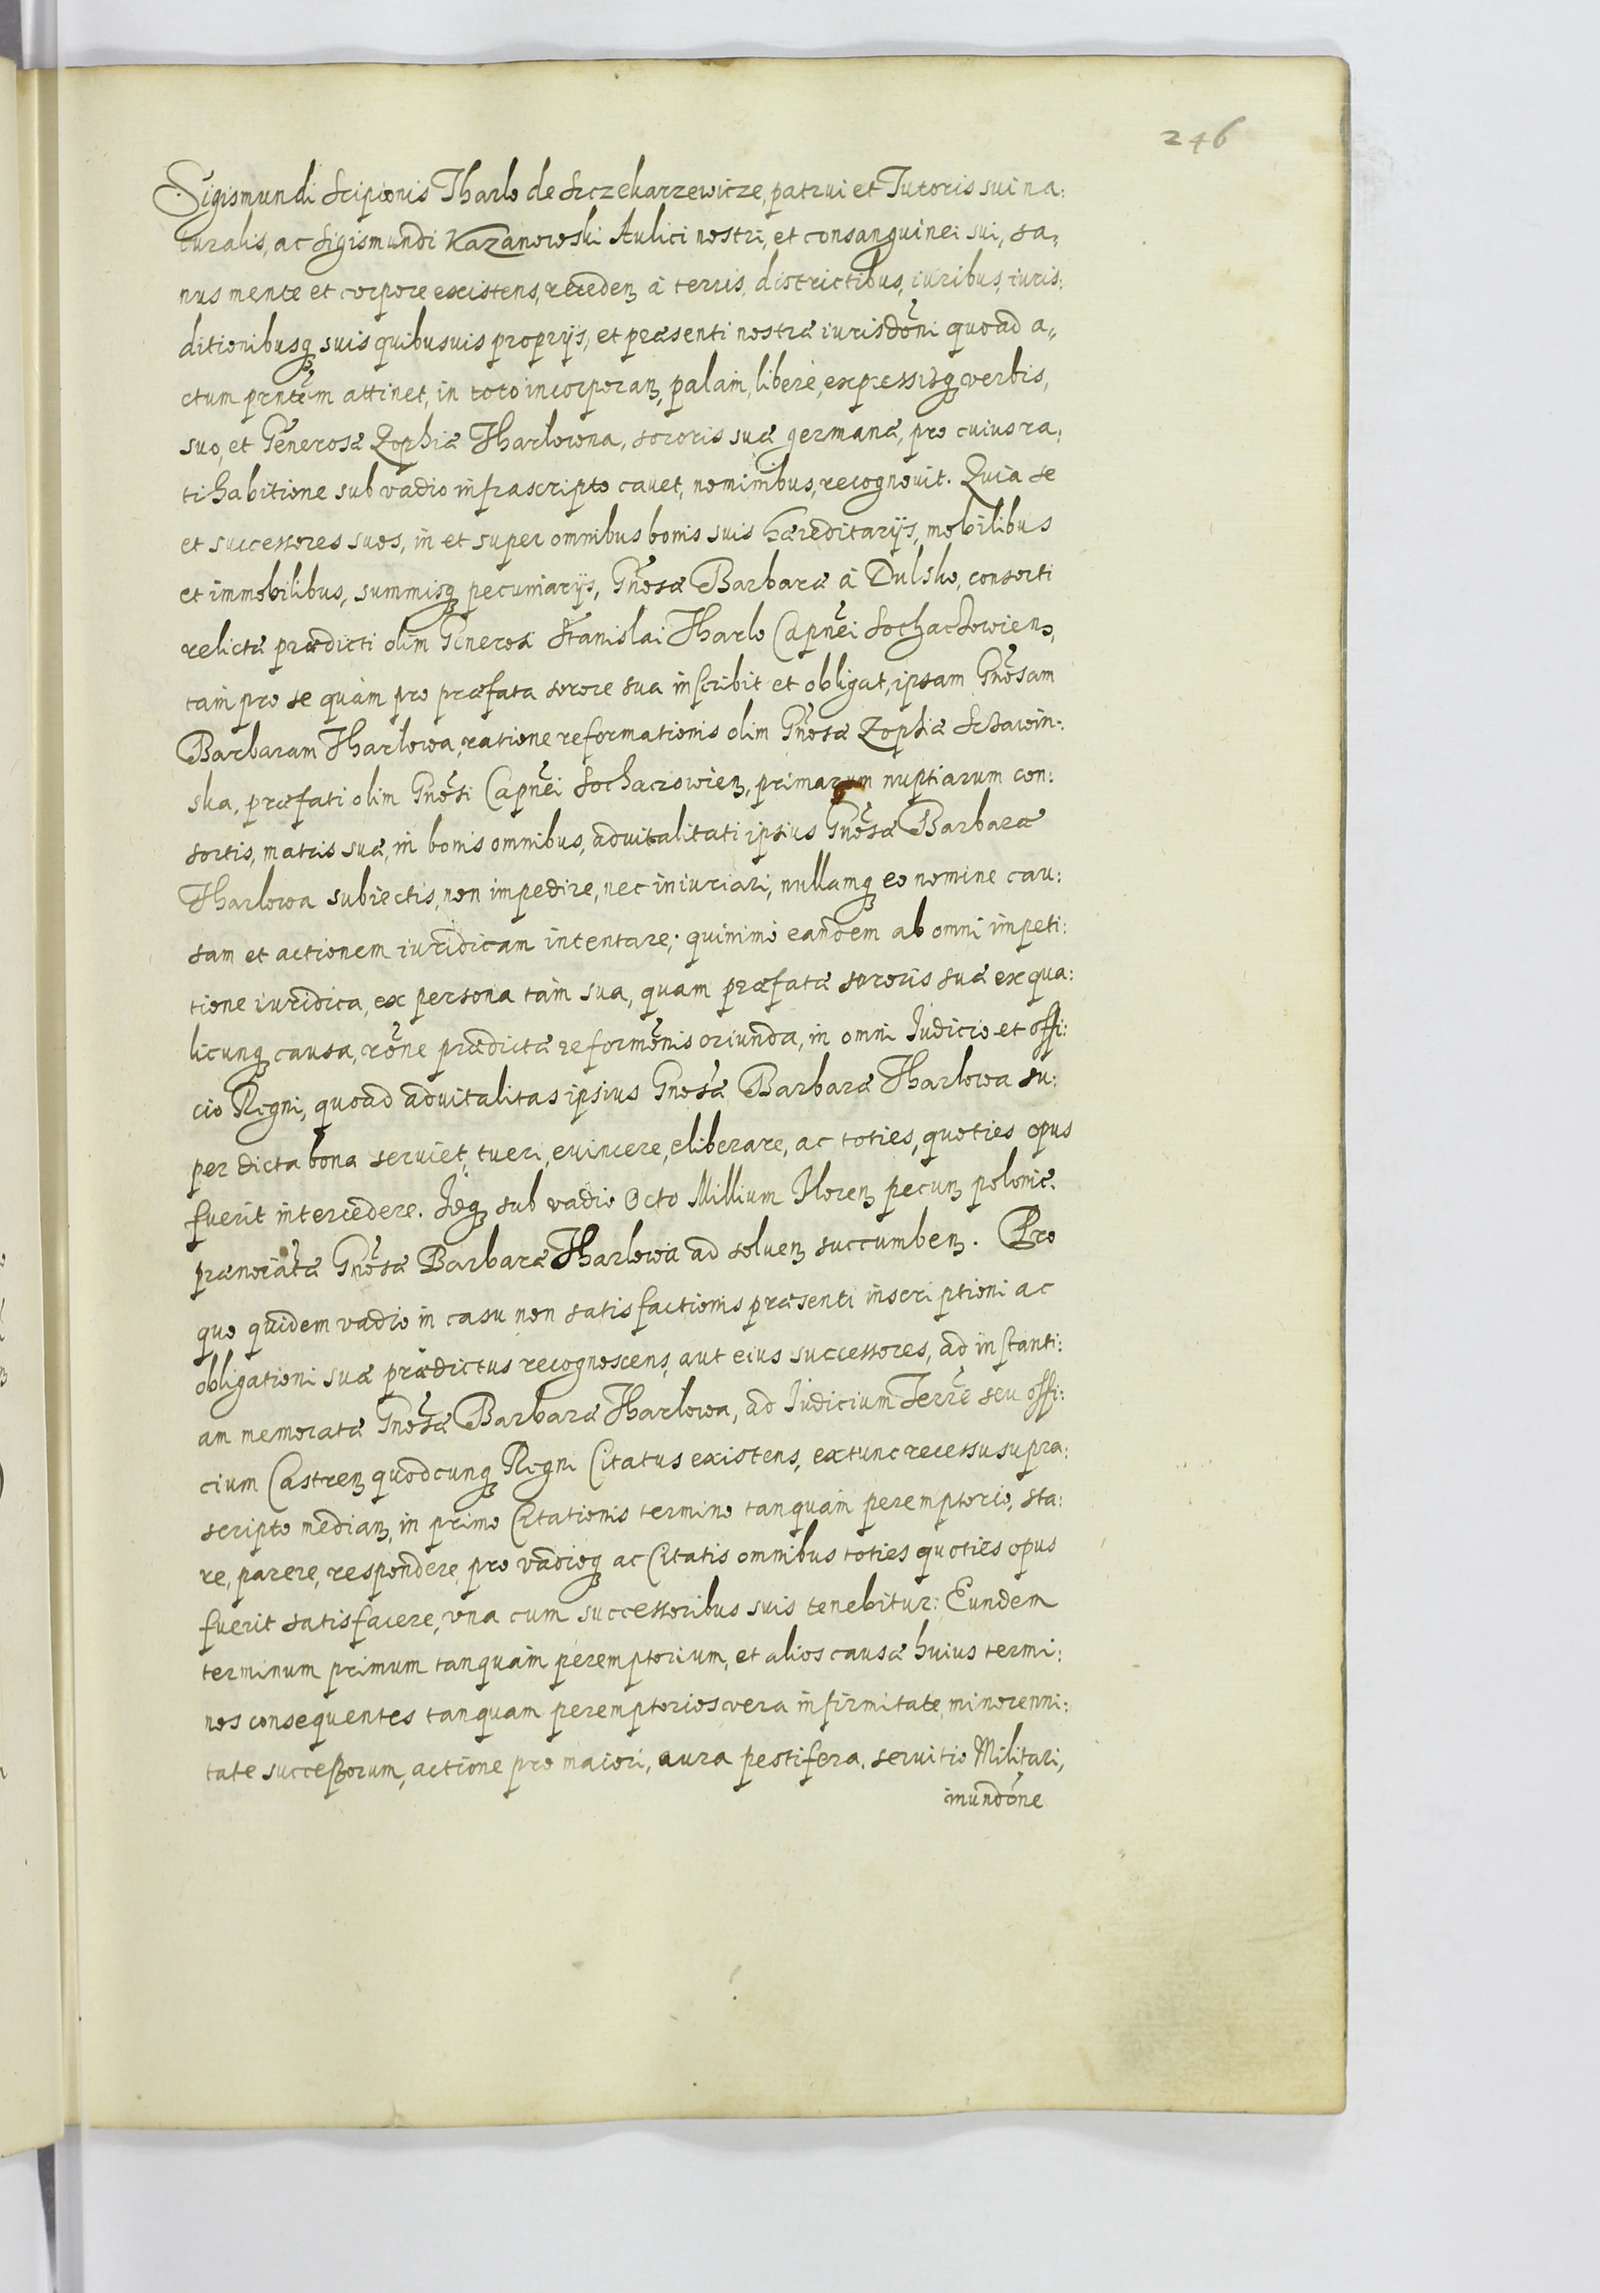 246
Sigismundi Scipionis Tharlo de Sczekarzewicze, patrui et Tutoris sui na:
turalis, ac Sigismundi Kazanowski Aulici nostri, et consanguinei sui, sa,
nus mente et corpore existens, receden à terris, districtibus, iuribus, iuris:
ditionibusq suis quibusuis proprijs, et præsenti nostræ iurisdõni quoad a,
ctum pñtem attinet, in toto incorporan, palam, liberè, expressisq verbis,
suo, et Generosæ Zophiæ Tharlowna, sororis suæ germanæ, pro cuius ra,
ti habitione sub vadio infrascripto cauet, nominibus, recognouit. Quia se
et successores suos, in et super omnibus bonis suis hæreditarijs, mobilibus
et immobilibus, summisq pecuniarijs, Gnõsæ Barbaræ à Dulsko, consorti
relictæ prædicti olim Generosi Stanislai Tharlo Capñei Sochaczowien,
tam pro se quàm pro præfata sorore sua inscribit et obligat, ipsam Gnõsam
Barbaram Tharlowa, ratione reformationis olim Gnõsæ Zophiæ Sczawin:
ska, præfati olim Gnõsi Capñei Sochaczowien, primarum nuptiarum con:
sortis, matris suæ, in bonis omnibus, aduitalitati ipsius Gnõsæ Barbaræ
Tharlowa subiectis, non impedire, nec iniuriari, nullamq eo nomine cau:
sam et actionem iuridicam intentare; quinimò eandem ab omni impeti:
tione iuridica, ex persona tàm sua, quam præfatæ sororis suæ ex qua:
licunq causa, rõne prædictæ reformõnis oriunda, in omni Iudicio et offi:
cio Regni, quoad aduitalitas ipsius Gnõsæ Barbaræ Tharlowa su:
per dicta bona seruiet, tueri, euincere, eliberare, ac toties, quoties opus
fuerit intercedere. Idq sub vadio Octo Millium Floren pecun polonic.
prænoiatæ Gnõsæ Barbaræ Tharlowa ad soluen succumben. Pro
quo quidem vadio in casu non satisfactionis præsenti inscriptioni ac
obligationi suæ prædictus recognoscens, aut eius successores, ad instanti:
am memoratæ Gnõsæ Barbaræ Tharlowa, ad Iudicium Terrẽ seu offi:
cium Castren quodcunq Regni Citatus existens, extunc recessu supra:
scripto median, in primo Citationis termino tanquàm peremptorio, sta:
re, parere, respondere, pro vadioq ac Citatis omnibus toties quoties opus
fuerit satisfacere, vna cum successoribus suis tenebitur: Eundem
terminum primum tanquàm peremptorium, et alios causæ huius termi:
nos consequentes tanquam peremptorios vera infirmitate, minorenni:
tate successorum, actione pro maiori, aura pestifera, seruitio Militari,
inundõne